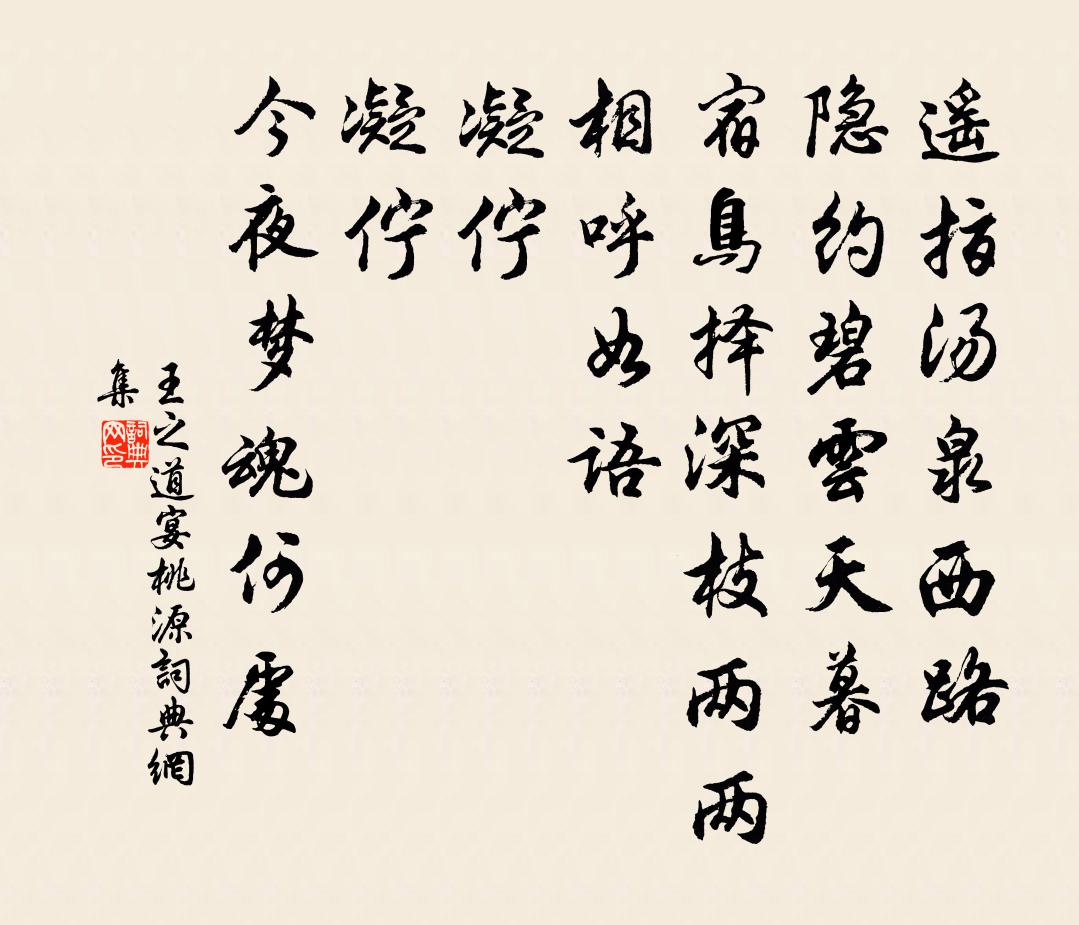 遥指汤泉西路
隐约碧雲天暮
宿鳥择深枝两两
相呼如语
凝伫
凝伫
今夜梦魂何處
王之道宴桃源詞典網
集
詞典
网印